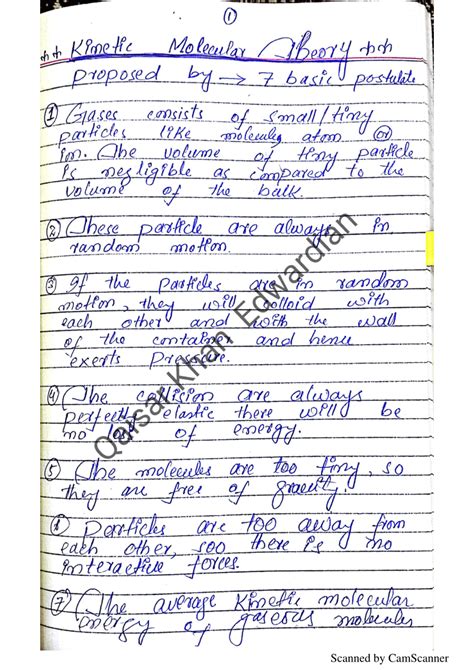 ①
** Kinetic Molecular Theory **
Proposed by → 7 basic postulate
① Gases consists of small/tiny
particles like molecules atom or
ion. The volume of tiny particle
is negligible as compared to the
volume of the balk.
② These particle are always in
random motion.
③ If the particles are in random
motion, they will colloid with
each other and with the wall
of the container and hence
exerts pressure.
④ The collision are always
perfectly elastic there will be
no loss of energy.
⑤ The molecules are too tiny, so
they are free of gravity.
⑥ Particles are too away from
each other, soo there is no
interactive forces.
⑦ The average Kinetic molecular
energy of gaseous molecules
Qaisar Khan Edwardian
Scanned by CamScanner